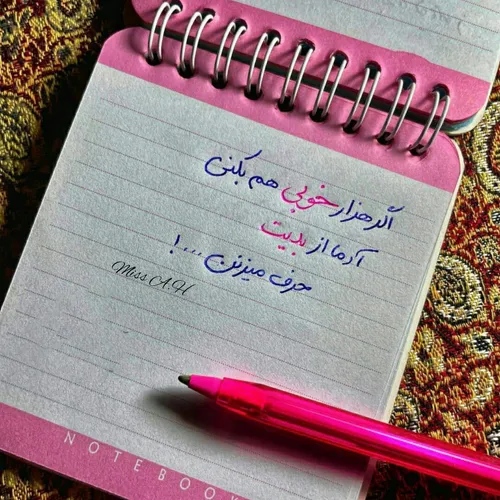 اگر هزار خوبی هم بکنی
آدما از بدیت
حرف میزنن ...!
Miss A.H
NOTEBOOK